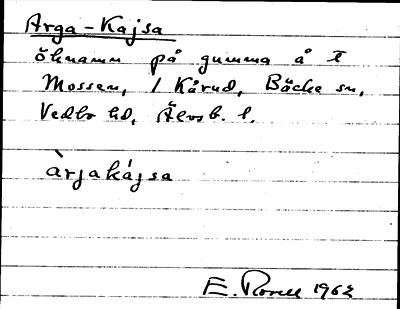 Arga-Kajsa
öknamn på gumma å t
Mossen, 1 Kårud, Bäcke sn,
Vedbo hd, Älvsb. l.
àrjakájsa
E. 1962